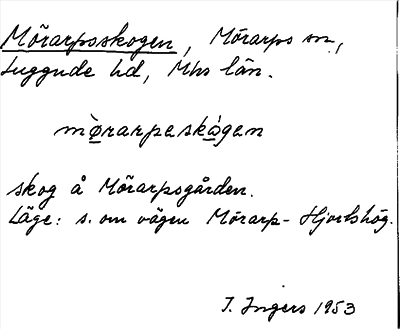 Mörarpsskogen, Mörarps sn,
Luggude hd, Mhs län.
mø̀rarpeskógen
skog å Mörarpsgården.
Läge: s. om vägen Mörarp - Hjortshög.
I. Ingers 1953